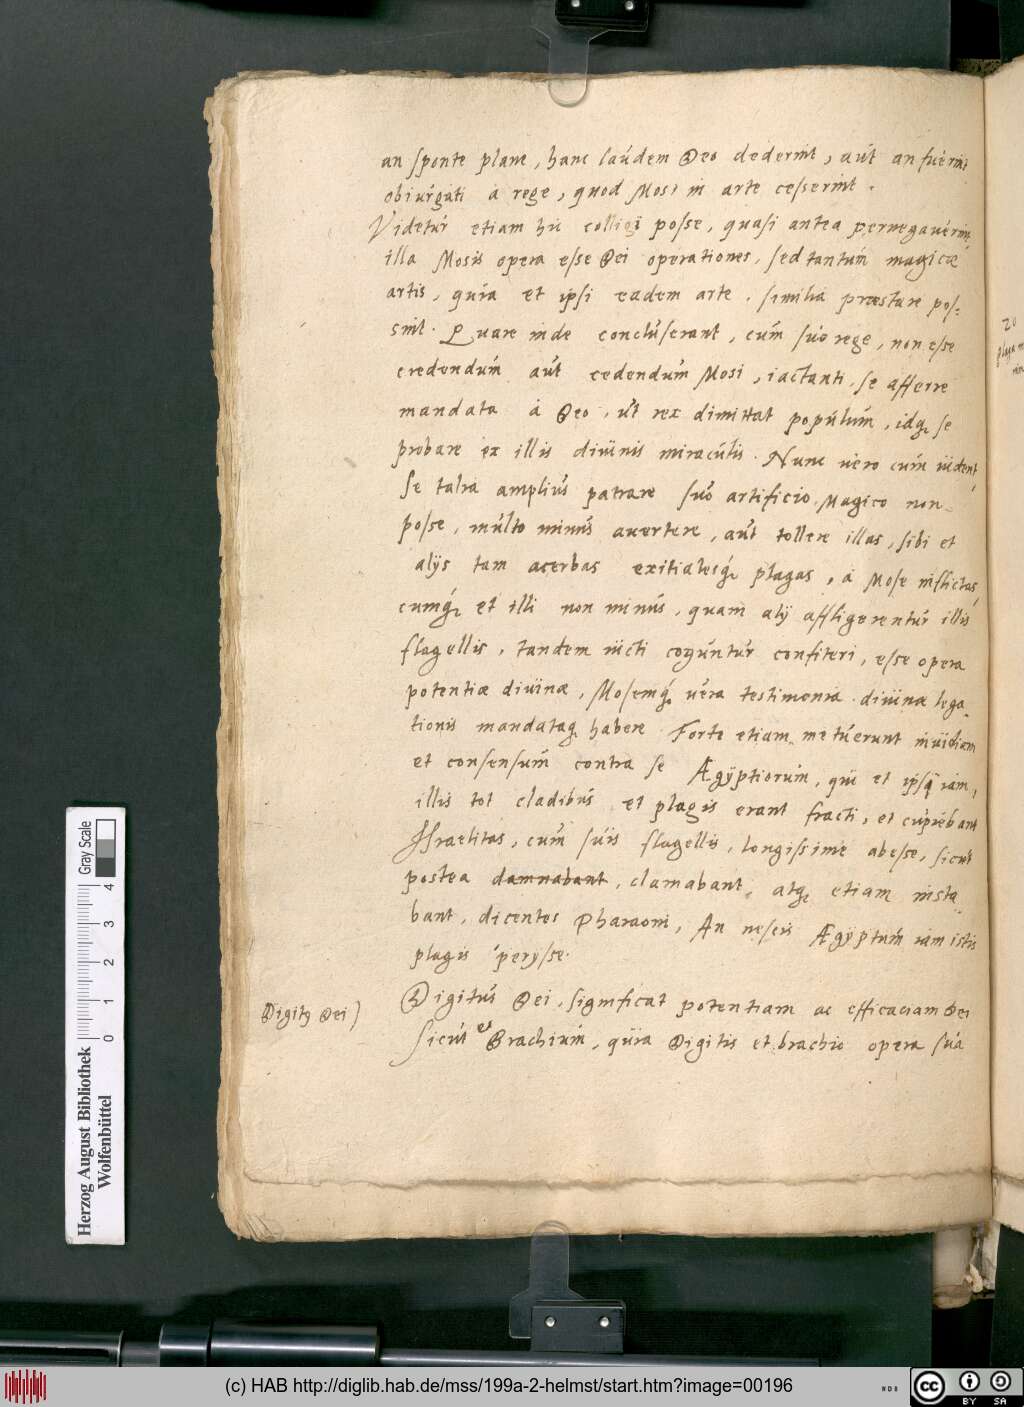 an sponte plane, hanc laúdem Deo dederint, aút an fúerint
obiúrgati à rege, quod Mosi in arte cesserint.
Videtúr etiam hic colligi posse, quasi antea pernegaúerint
illa Mosis opera esse Dei operationes, sed tantúm magicæ
artis, quia et ipsi eadem arte similia præstare pos=
sint. Quare inde conclúserant, cúm súo rege, non esse
credendúm aút cedendúm Mosi, iactanti, se afferre
mandata à Deo, út rex dimittat popúlúm, idq; se
probare ex illis diúinis miracúlis. Nunc uero cúm uident,
se talia ampliús patrare súo artificio Magico non
posse, múlto minús auertere, aút tollere illas, sibi et
alijs tam acerbas exitialesq́; plagas, à Mose inflictas,
cumq́; et illi non minús, quam alij affligerentúr illis
flagellis, tandem uicti cogúntúr confiteri, esse opera
potentiæ diúinæ, Mosemq́; uéra testimonia diúinæ lega
tionis mandataq; habere Forte etiam metúerunt inuidiam
et consensúm contra se Ægÿptiorúm, qui et ipsi iam,
illis tot cladibús et plagis erant fracti, et cúpiebant
Israelitas, cúm súis flagellis, longissime abesse, sicút
postea damnabant, clamabant, atq; etiam insta
bant, dicentes Pharaoni, An nescis Ægÿptúm iam istis
plagis perÿsse.
Digitús Dei, significat potentiam ac efficaciam Dei
sicút et Brachiúm, qúia Digitis et brachio opera súa
Digitꝰ Dei)
20
plaga
Herzog August Bibliothek
Wolfenbüttel
0 1 2 3 4
Gray Scale
(c) HAB http://diglib.hab.de/mss/199a-2-helmst/start.htm?image=00196
WDB
cc BY SA